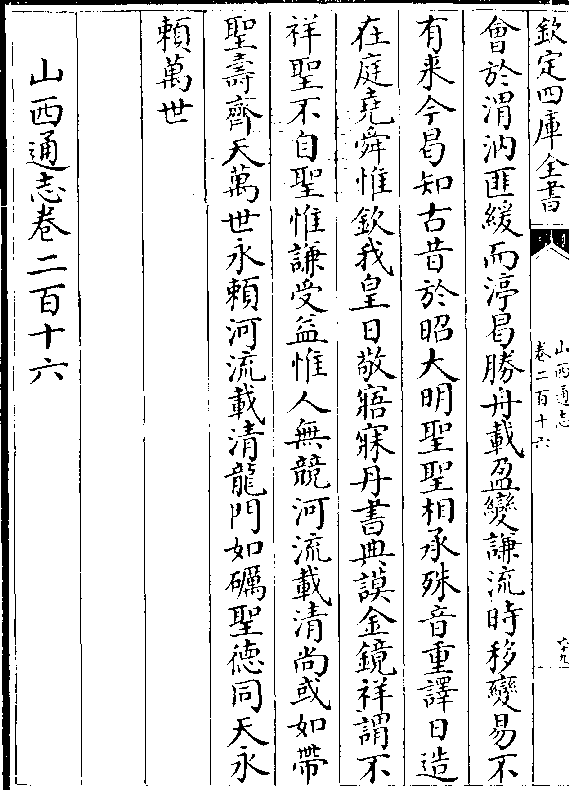 欽定四庫全書
山西通志
卷二百十六
六十九
會於渭汭匪緩而渟曷勝舟載盈變謙流時移變易不
有来今曷知古昔於昭大明聖聖相承殊音重譯日造
在庭堯舜惟欽我皇日敬寤寐丹書典謨金鏡祥謂不
祥聖不自聖惟謙受益惟人無競河流載清尚或如帶
聖壽齊天萬世永賴河流載清龍門如礪聖德同天永
頼萬世
山西通志卷二百十六